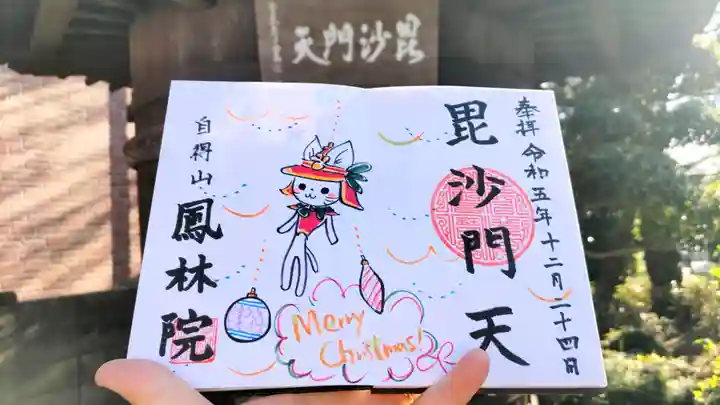 天門沙毘
奉拝 令和五年十二月二十四日
毘沙門天
Merry
Christmas!
自得山
鳳林院